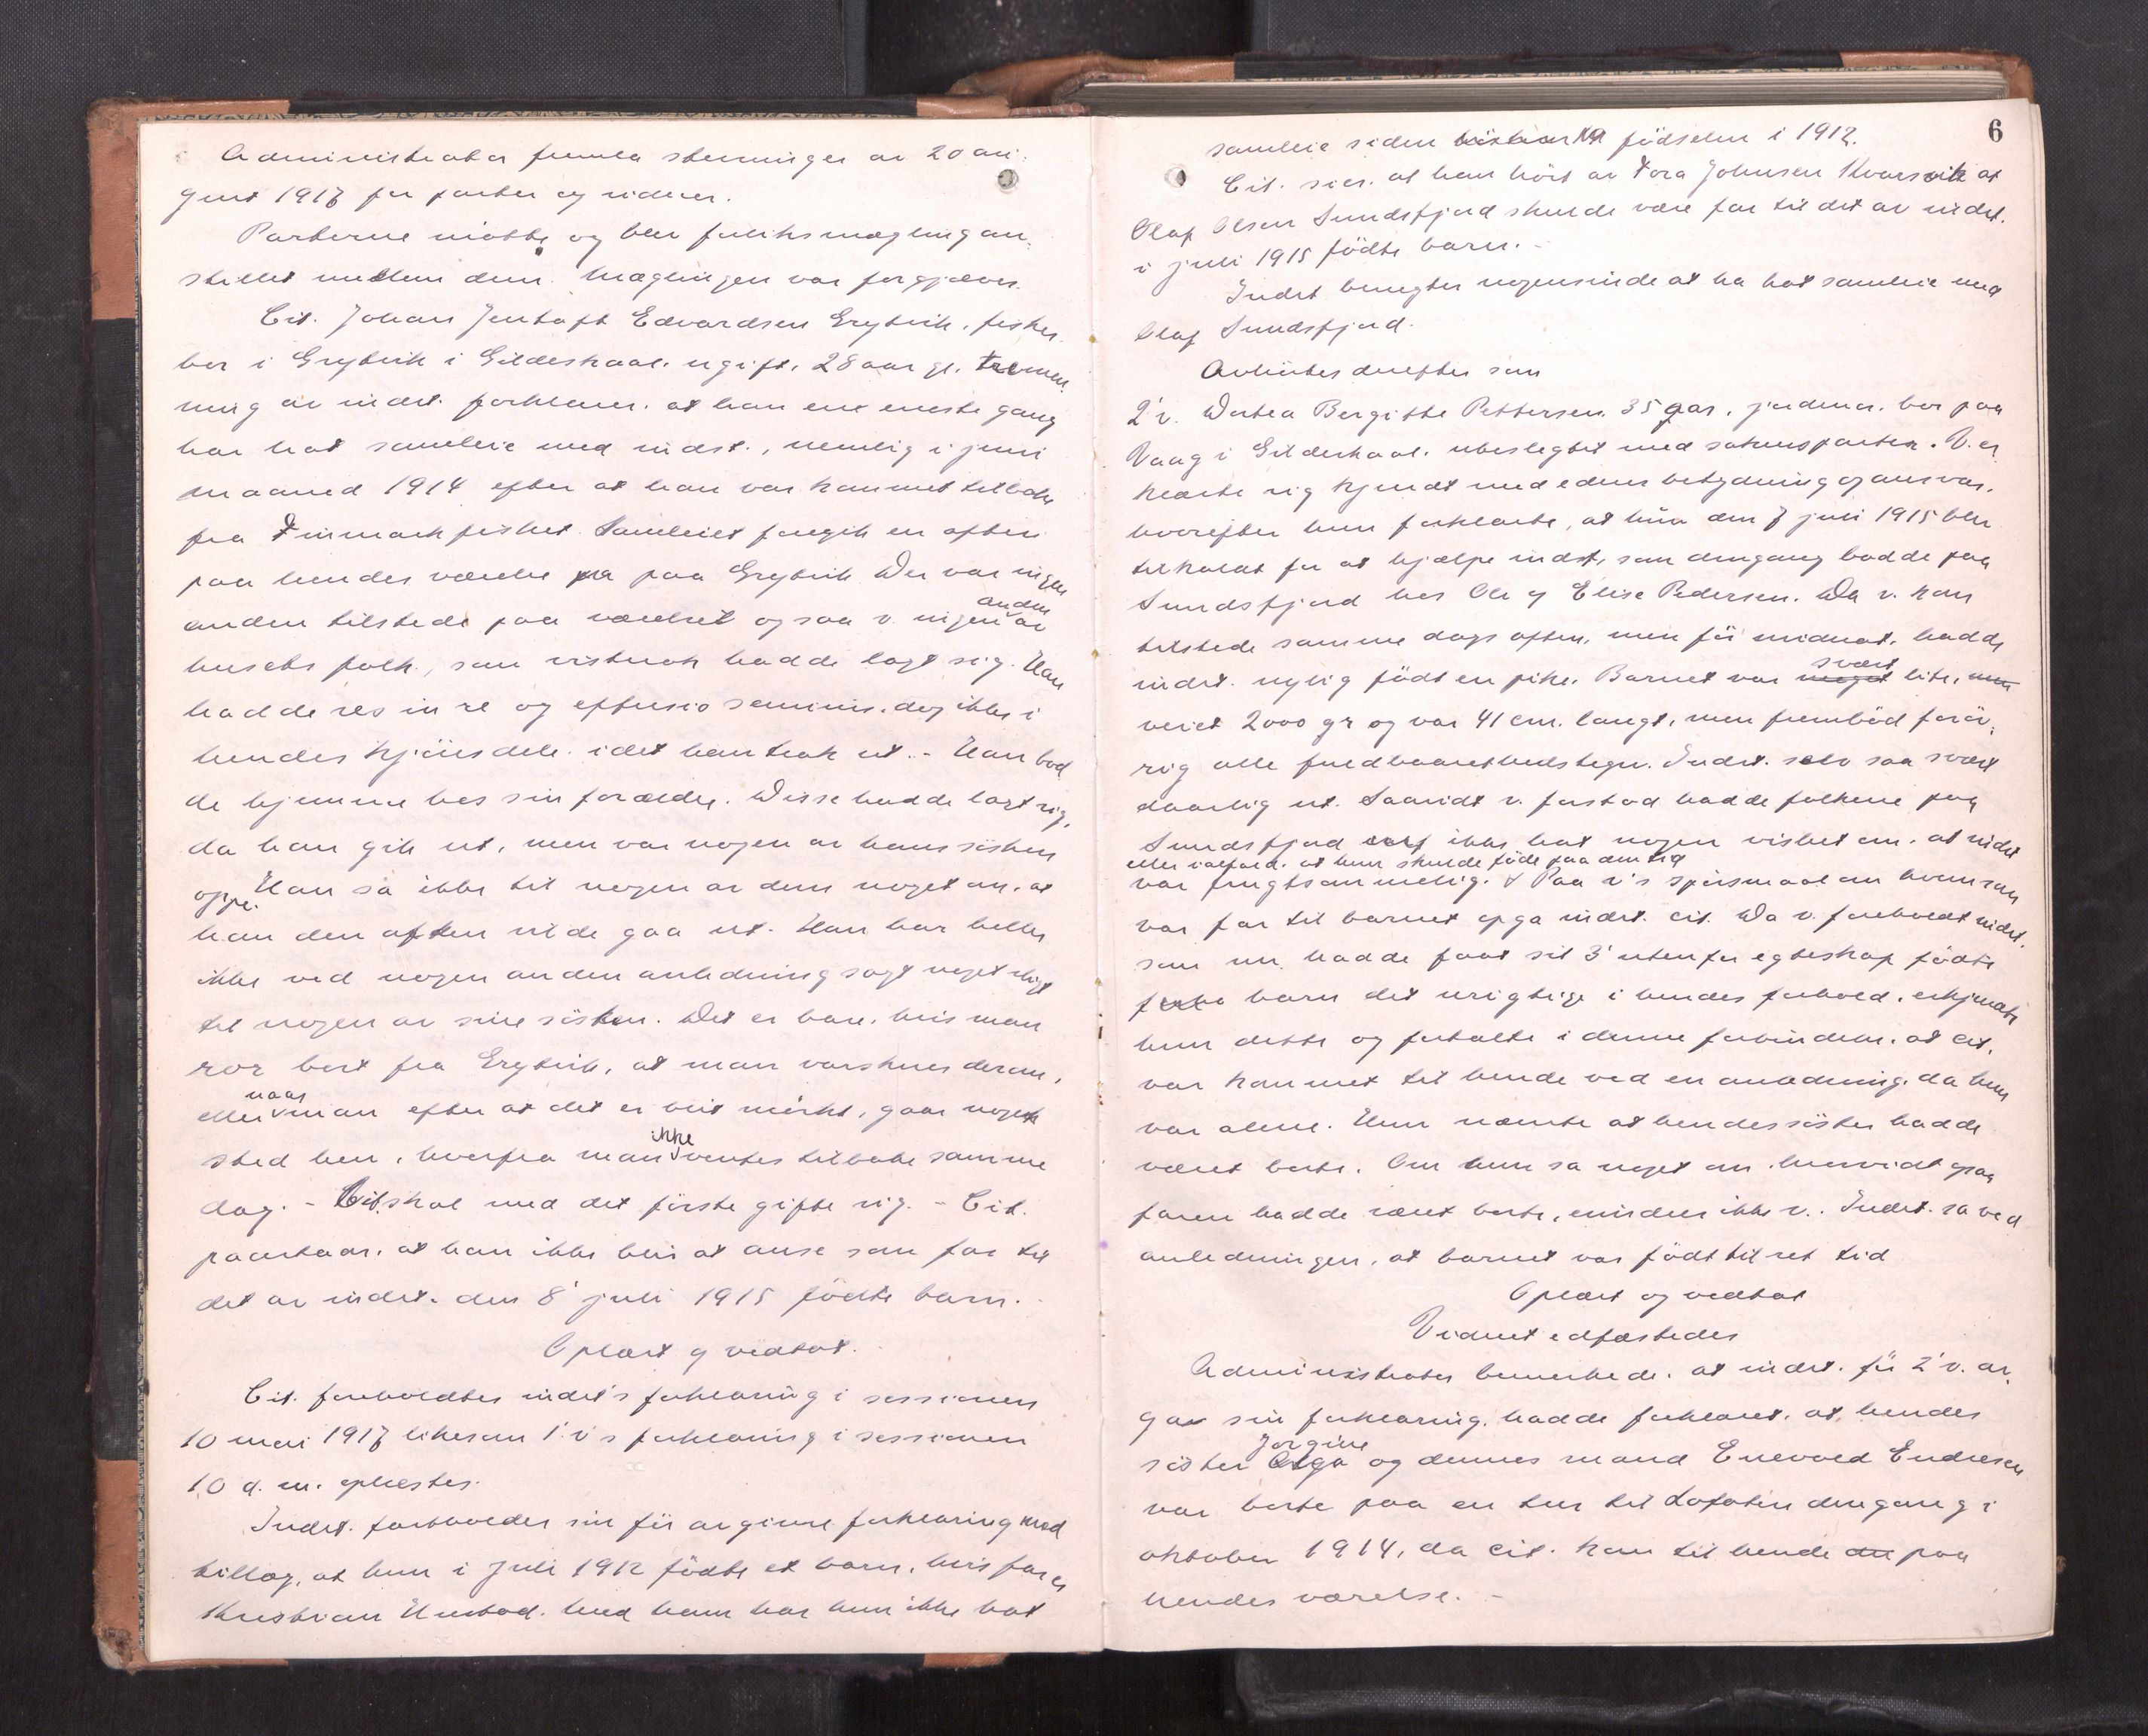 Administrator fremla stevninger av 20 au-
gust 1917 for parter og vidner.
Parterne møtte og blev forliksmægling an-
stillet mellem dem. Mæglingen var forgjæves.
Cit. Johan Jentoft Edvardsen Grytvik, fisker
bor i Grytvik i Gildeskaal. ugift. 28 aar gl. tremen-
ning av indst. forklarer. at han en eneste gang
har hat samleie med indst., nemlig i juni
maaned 1914 efter at han var kommet tilbake
fra Finmarkfisket. Samleiet foregik en aften
paa hendes værelse paa Grytvik. Der var ingen
anden tilstede paa værelset og saa v. ingen anden av
husets folk, som vistnok hadde lagt sig. Han
hadde res in re og effusio seminis. dog ikke i
hendes kjønsdele. idet han trak ut. - Han bod
de hjemme hos sin forældre. Disse hadde lagt sig,
da han gik ut, men var nogen av hans søsken
oppe. Han sa ikke til nogen av dem noget om. at
han den aften vilde gaa ut. Han har heller
ikke ved nogen anden anledning sagt noget sligt
til nogen av sine søsken. Det er bare, hvis man
ror bort fra Grytvik, at man varskues derom,
eller naar man efter at det er blit mørkt, gaar noget
sted hen, hvorfra man ikke ventes tilbake samme
dag. - Cit. skal med det første gifte sig. - Cit.
paastaar. at han ikke blir at anse som far til
det av indst. den 8' juli 1915 fødte barn. -
Oplæst og vedtat.
Cit. foreholdtes indst's forklaring i sessionen
10 mai 1917 likesom 1' v's forklaring i sessionen
10 d. m. oplæstes.
Indst. fastholder sin før avgivne forklaring med
tillæg, at hun i juli 1912 fødte et barn, hvis far er
Kristian. Med ham har hun ikke hat
6
samleie siden fødselen i 1912.
Cit. sier. at han hørt av Tora Johnsen Kvarsvik at
Olaf Olsen Sundsfjord skulde være far til det av indst.
i juli 1915 fødte barn. -
Indst benegter nogensinde at ha hat samleie med
Olaf Sundsfjord.
Avhørtes derefter som
2' v. Dortea Bergitte Pettersen. 35 aar. jordmor. bor paa
Vaag i Gildeskaal. ubeslegtet med saksparterne. V. er-
klærte sig kjendt med edens betydning og ansvar.
hvorefter hun forklarte, at hun den 7 juli 1915 blev
tilkaldt for at hjælpe indst, som dengang bodde paa
Sundsfjord hos Ole og Elise Pedersen. Da v. kom
tilstede samme dags aften, men før midnat. hadde
indst. nylig født en pike. Barnet var meget svært lite, men
veiet 2000 gr og var 41 cm. langt, men frembød forøv-
rig alle fuldbaarethedstegn. Indst. selv saa svært
daarlig ut. Saavidt v. forstod hadde folkene paa
Sundsfjord ikke hat nogen vished om. at indst
eller ialfald. at hun skulde føde paa den tid
var frugtsommelig. Paa v's spørsmaal om hvem som
var far til barnet opga indst. cit. Da v. foreholdt indst.
som nu hadde faat sit 3' utenfor egteskap fødte
barn det urigtige i hendes forhold. erkjendte
hun dette og fortalte i denne forbindelse. at cit.
var kommet til hende ved en anledning. da hun
var alene. Hun nævnte at hendes søster hadde
været borte. Om hun sa noget om. hvorvidt ogsaa
faren hadde været borte, mindes ikke v.. Indst. sa ved
anledningen, at barnet var født til ret tid
Oplæst og vedtat
Vidnet edfæstedes
Administrator bemerkede. at indst. før 2' v. av-
gav sin forklaring. hadde forklaret. at hendes
søster Olga Jorgine og dennes mand Enevold Endresen
var borte paa en tur til Lofoten dengang i
oktober 1914, da cit. kom til hende paa
hendes værelse. -